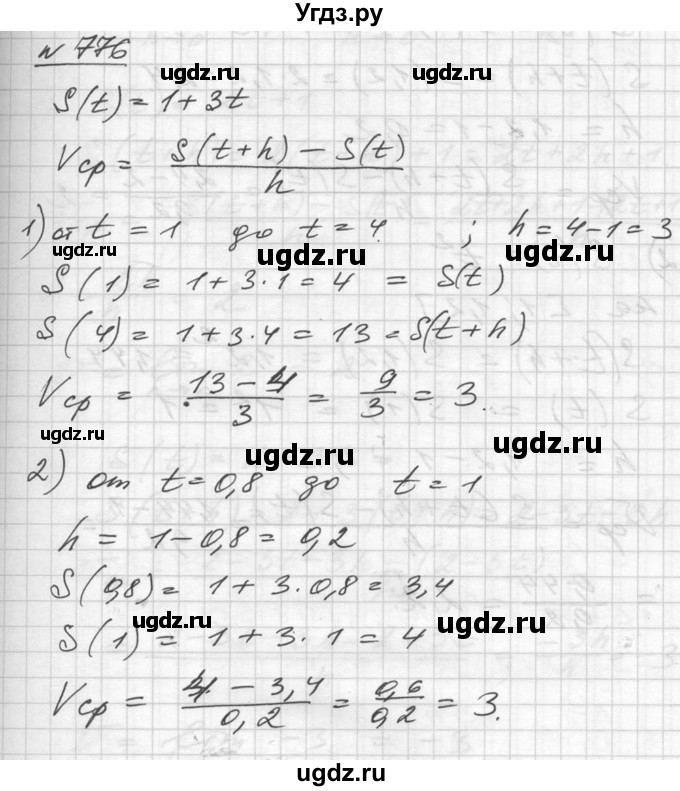 Угдз.ру
№ 776
ugdz.ru ugdz.ru
S(t) = 1 + 3t
Vср = S(t+h) − S(t) / h
ugdz.ru
1) от t = 1 до t = 4 ; h = 4−1 = 3
ugdz.ru ugdz.ru ugdz.ru
S(1) = 1 + 3·1 = 4 = S(t)
S(4) = 1 + 3·4 = 13 = S(t+h)
ugdz.ru
Vср = 13 − 4 / 3 = 9/3 = 3.
ugdz.ru ugdz.ru ugdz.ru
2) от t = 0,8 до t = 1
h = 1 − 0,8 = 0,2
ugdz.ru
S(0,8) = 1 + 3·0,8 = 3,4
ugdz.ru ugdz.ru
S(1) = 1 + 3·1 = 4
Vср = 4 − 3,4 / 0,2 = 0,6/0,2 = 3.
ugdz.ru
ugdz.ru